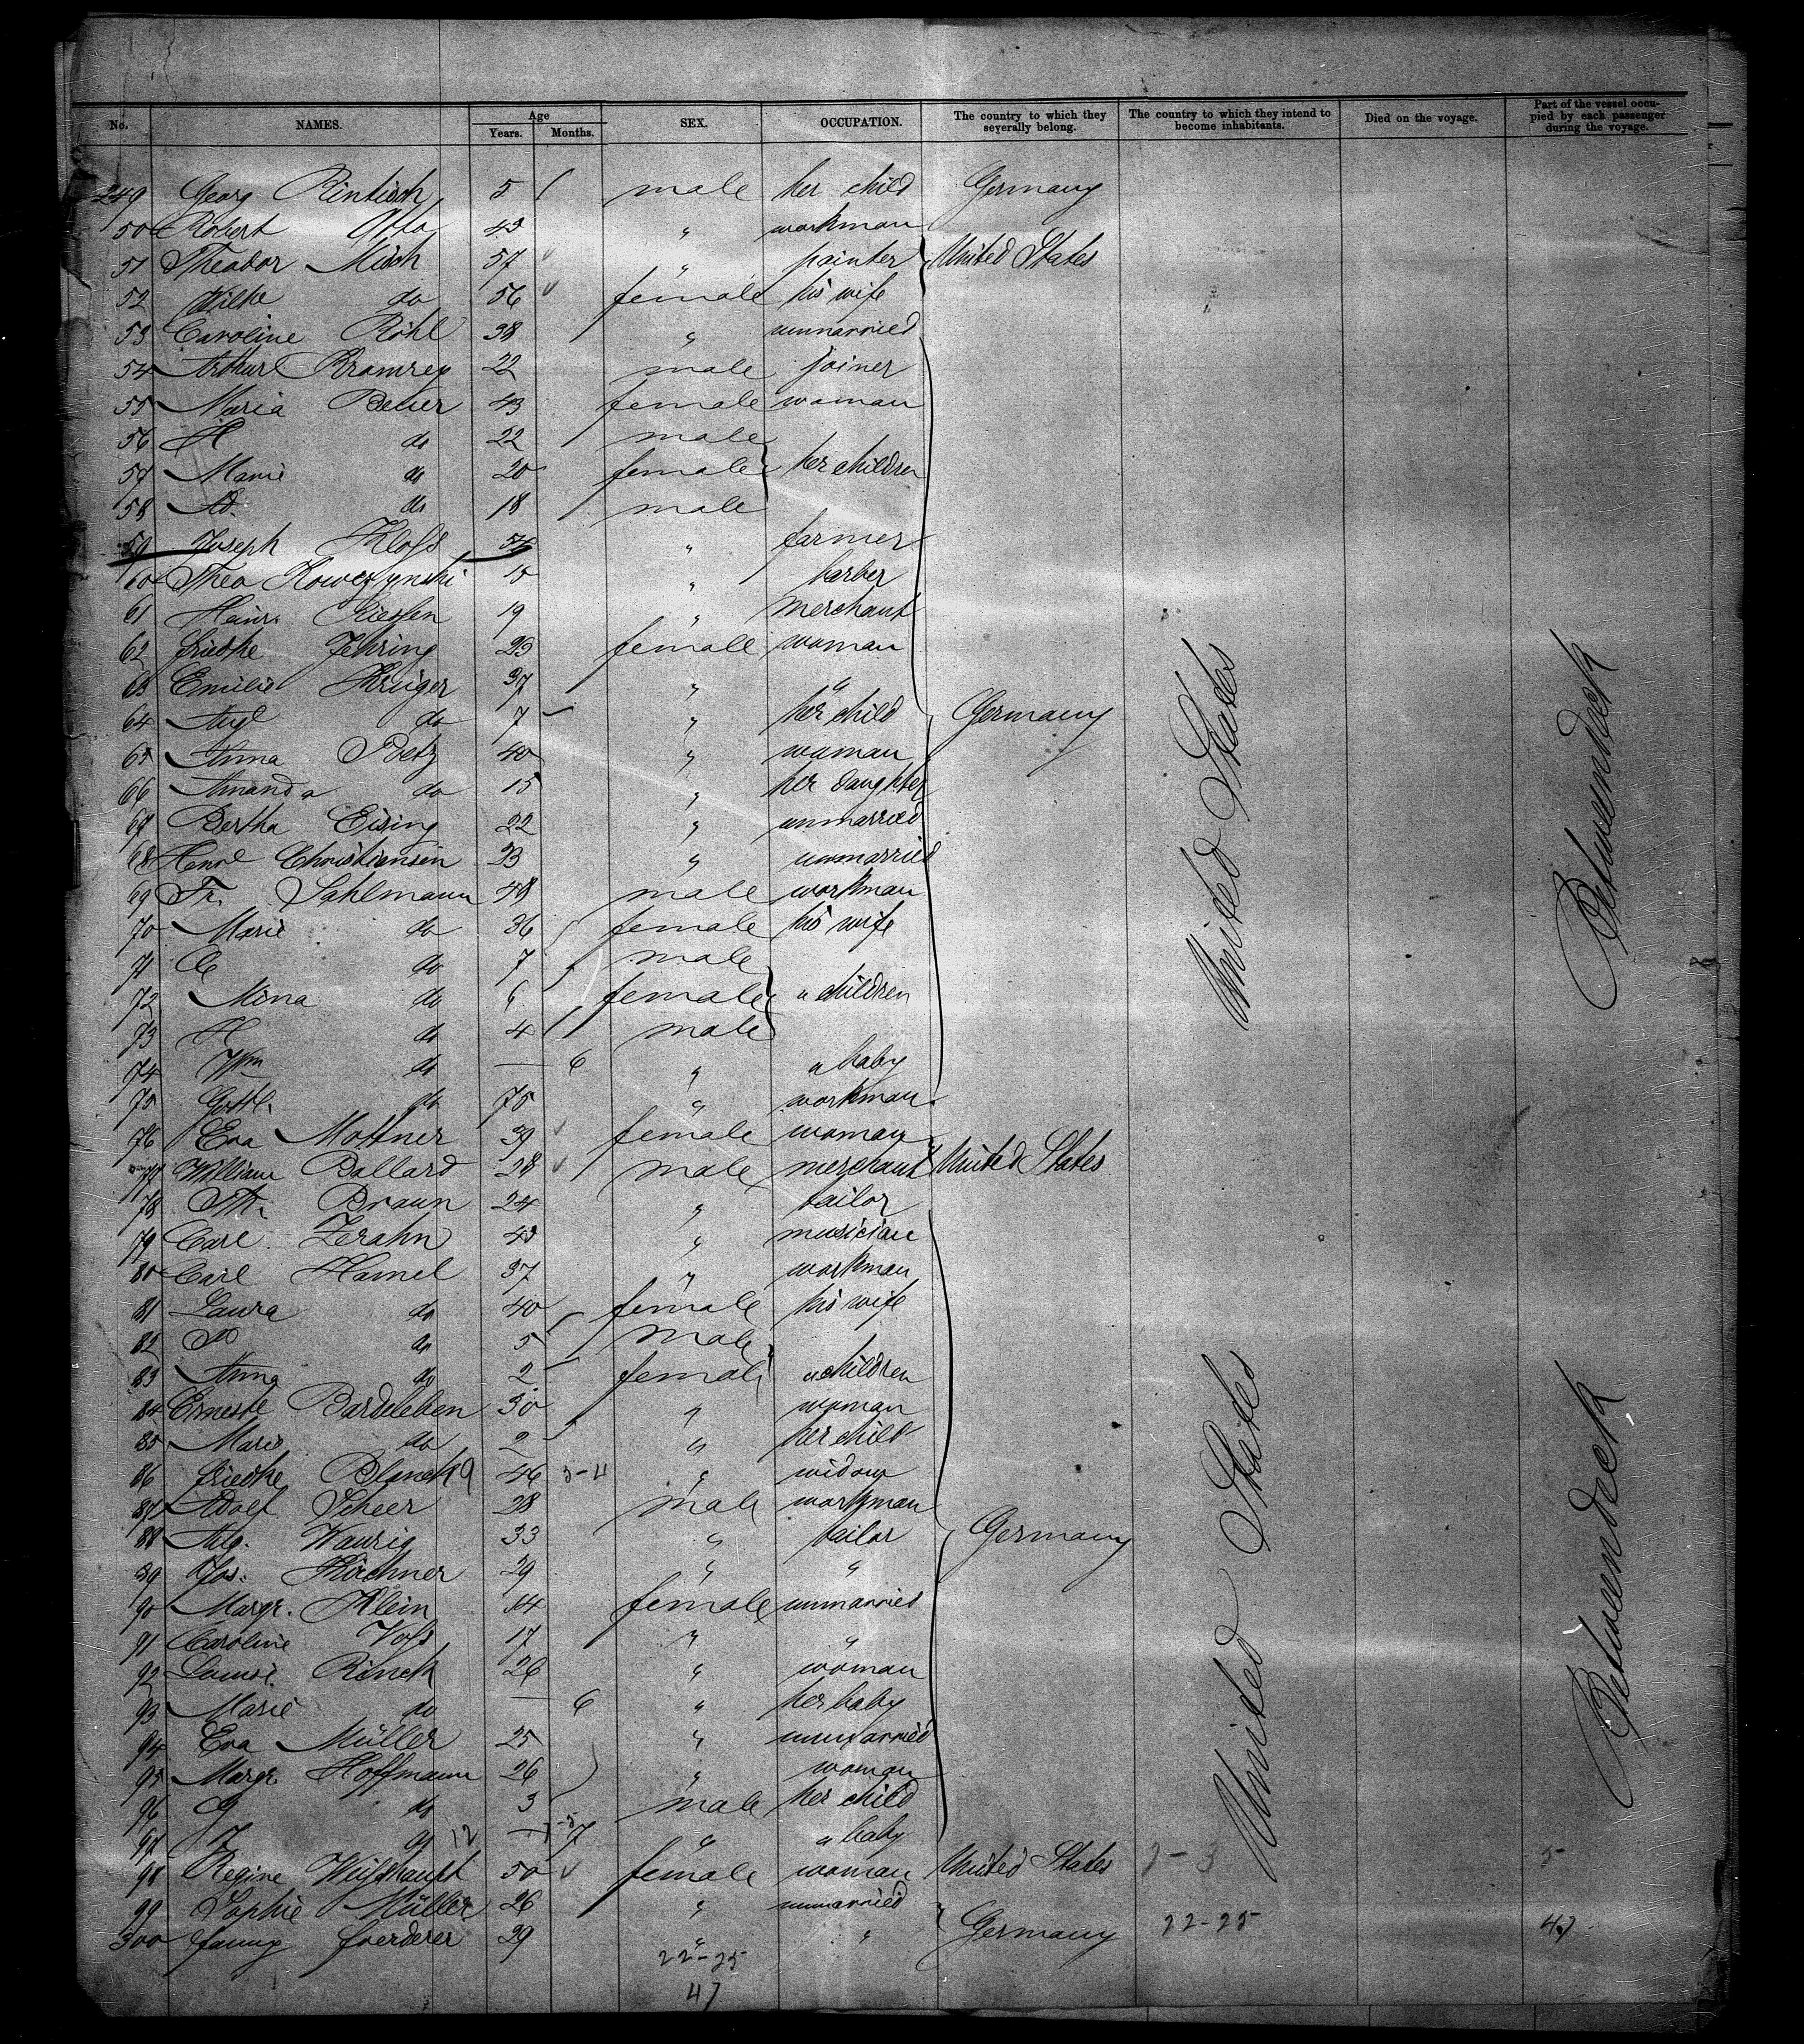 No. NAMES. Age Years. Months. SEX. OCCUPATION. The country to which they severally belong. The country to which they intend to become inhabitants. Died on the voyage. Part of the vessel occupied by each passenger during the voyage.
249 Georg Rintisch 5 male her child Germany
50 Robert Otto 43 " workman
51 Theodor Misch 57 " painter United States
52 Wilhe do 56 female his wife
53 Caroline Röhl 38 " unmarried
54 Arthur Kramrey 22 male joiner
55 Maria Beuer 43 female woman
56 H do 22 male
57 Marie do 20 female her children
58 Ad. do 18 male
59 Joseph Kloss 54 " farmer
60 Theo 15 " barber
61 Heinr. Riessen 19 " merchant
62 friedke Jehring 23 female woman
63 Emilie Krüger 37 " "
64 Aug do 7 " her child Germany
65 Anna Poetz 40 " woman
66 Amanda do 15 " her daughter
67 Bertha Eising 22 " unmarried
68 Christiansen 23 " unmarried
69 Fr. Sahlmann 48 male workman
70 Marie do 36 female his wife
71 C do 7 male
72 Mina do 6 female " children
73 H do 4 male
74 Wm do — 6 " " baby
75 Gottl. do 75 " workman
76 Eva Mottner 39 female woman
77 William Ballard 28 male merchant United States
78 Braun 24 " tailor
79 Carl Zerahn 43 " musician
80 Carl Hamel 37 " workman
81 Laura do 40 female his wife
82 P do 5 male
83 Anna do 2 female " children
84 Erneste Bardeleben 30 " woman
85 Marie do 2 " her child
86 friedke Blanck 9 46 5-4 " widow
87 Adolf Scheer 28 male workman
88 Aug. Waurig 33 " tailor Germany
89 Jos. Kirchner 29 " "
90 Margr. Klein 54 female unmarried
91 Caroline Voss 17 " "
92 Louise Rinck 26 " woman
93 Marie do — 6 " her baby
94 Eva Müller 25 " unmarried
95 Margr. Hoffmann 26 " woman
96 G do 3 male her child
97 J do 12 — 7 " " baby
98 Regine Weisshaupt 50 female woman United States 2-3 5
99 Sophie Müller 26 " unmarried
300 fanny foerderer 29 " " Germany 22-25 47
22-25
47
United States
Betweendeck
United States
Betweendeck